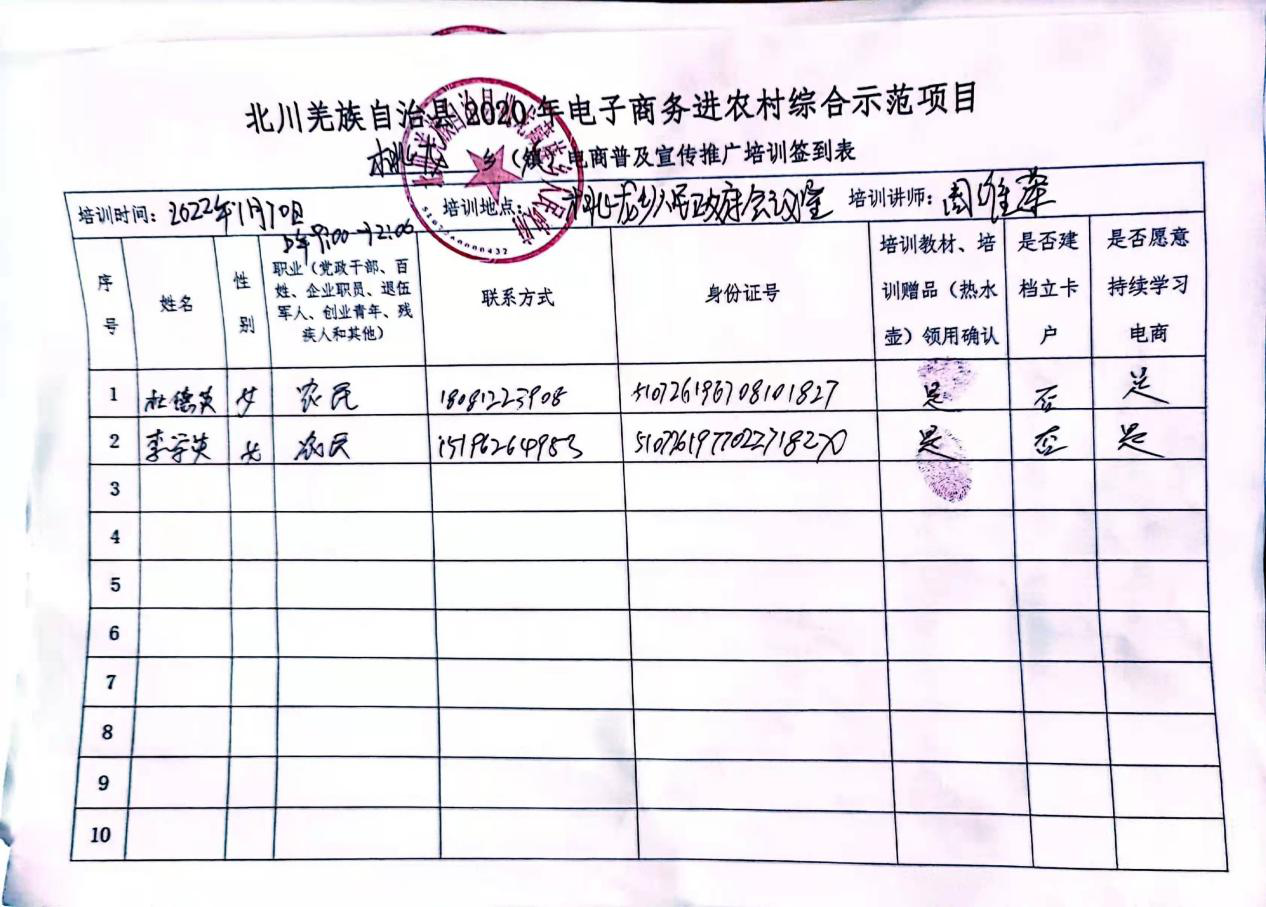 北川羌族自治县 2020 年电子商务进农村综合示范项目
桃龙 乡（镇）电商普及宣传推广培训签到表
培训时间：2022年1月10日 培训地点：桃龙乡人民政府会议室 培训讲师：周
上午9:00-12:00
序号 姓名 性别 职业（党政干部、百姓、企业职员、退伍军人、创业青年、残疾人和其他） 联系方式 身份证号 培训教材、培训赠品（热水壶）领用确认 是否建档立卡户 是否愿意持续学习电商
1 杜德英 女 农民 18081223908 510726196708101827 是 否 是
2 李英 女 农民 15196264983 51072619770227182X 是 否 是
3
4
5
6
7
8
9
10